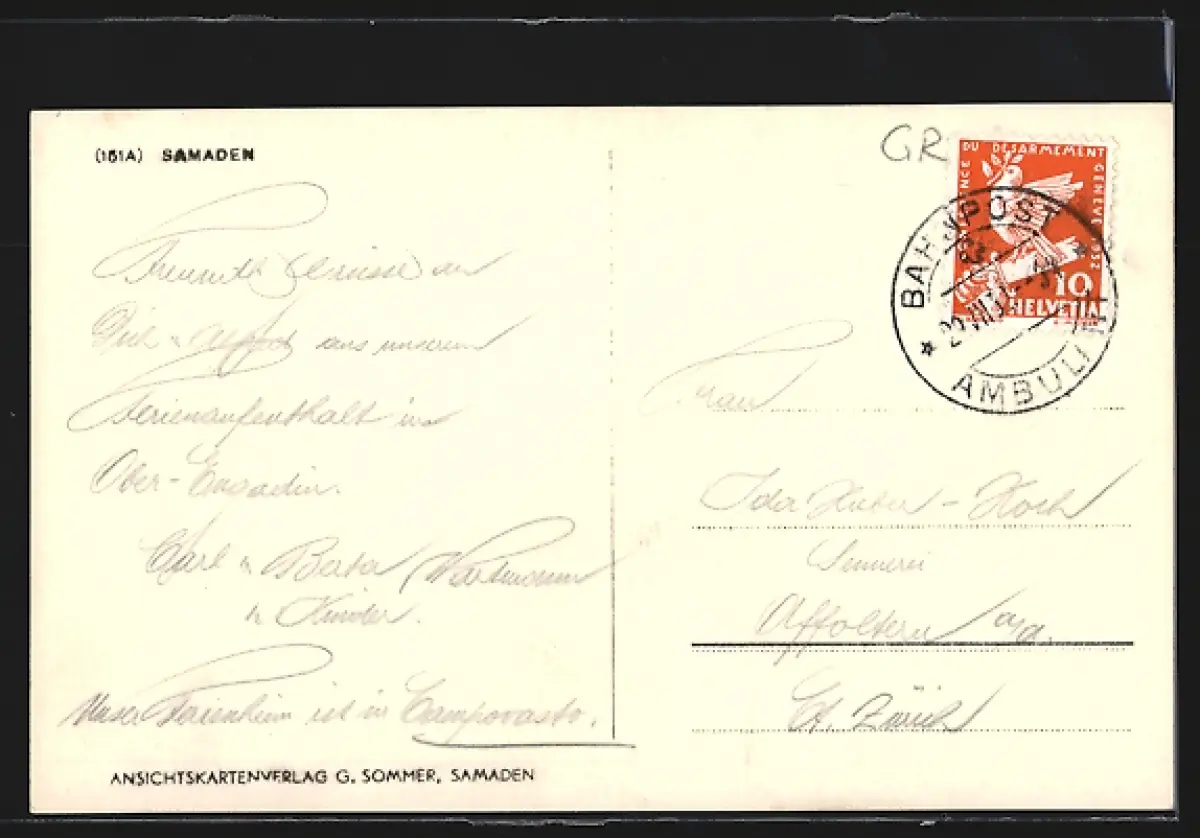 (151A) SAMADEN
Freundl. Grüsse an
Dich u. Alfred aus unserem
Ferienaufenthalt im
Ober-Engadin.
Carl u Berta Wartmann
u Kinder.
Unser Ferienheim ist in Campovasto.
ANSICHTSKARTENVERLAG G. SOMMER, SAMADEN
GR
DU DÉSARMEMENT GENÈVE 1932
10
HELVETIA
BAHNPOST
AMBULANT
Frau
Ida Huber-Koch
Sennerei
Affoltern a/A.
Kt. Zürich